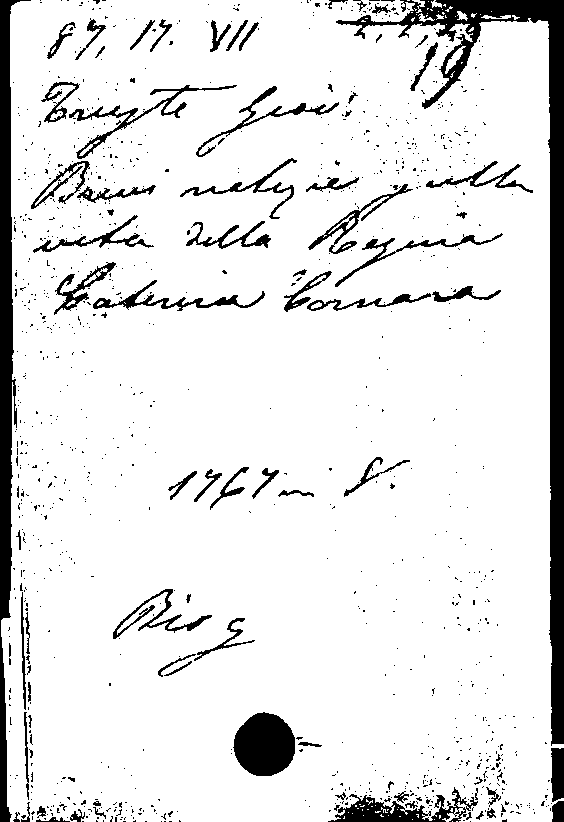 87, 17. VII 2, 2, 2
19
Trieste Giov:
Brevi notizie sulla
vita della Regina
Caterina Cornara
1767 in 8.
Biog